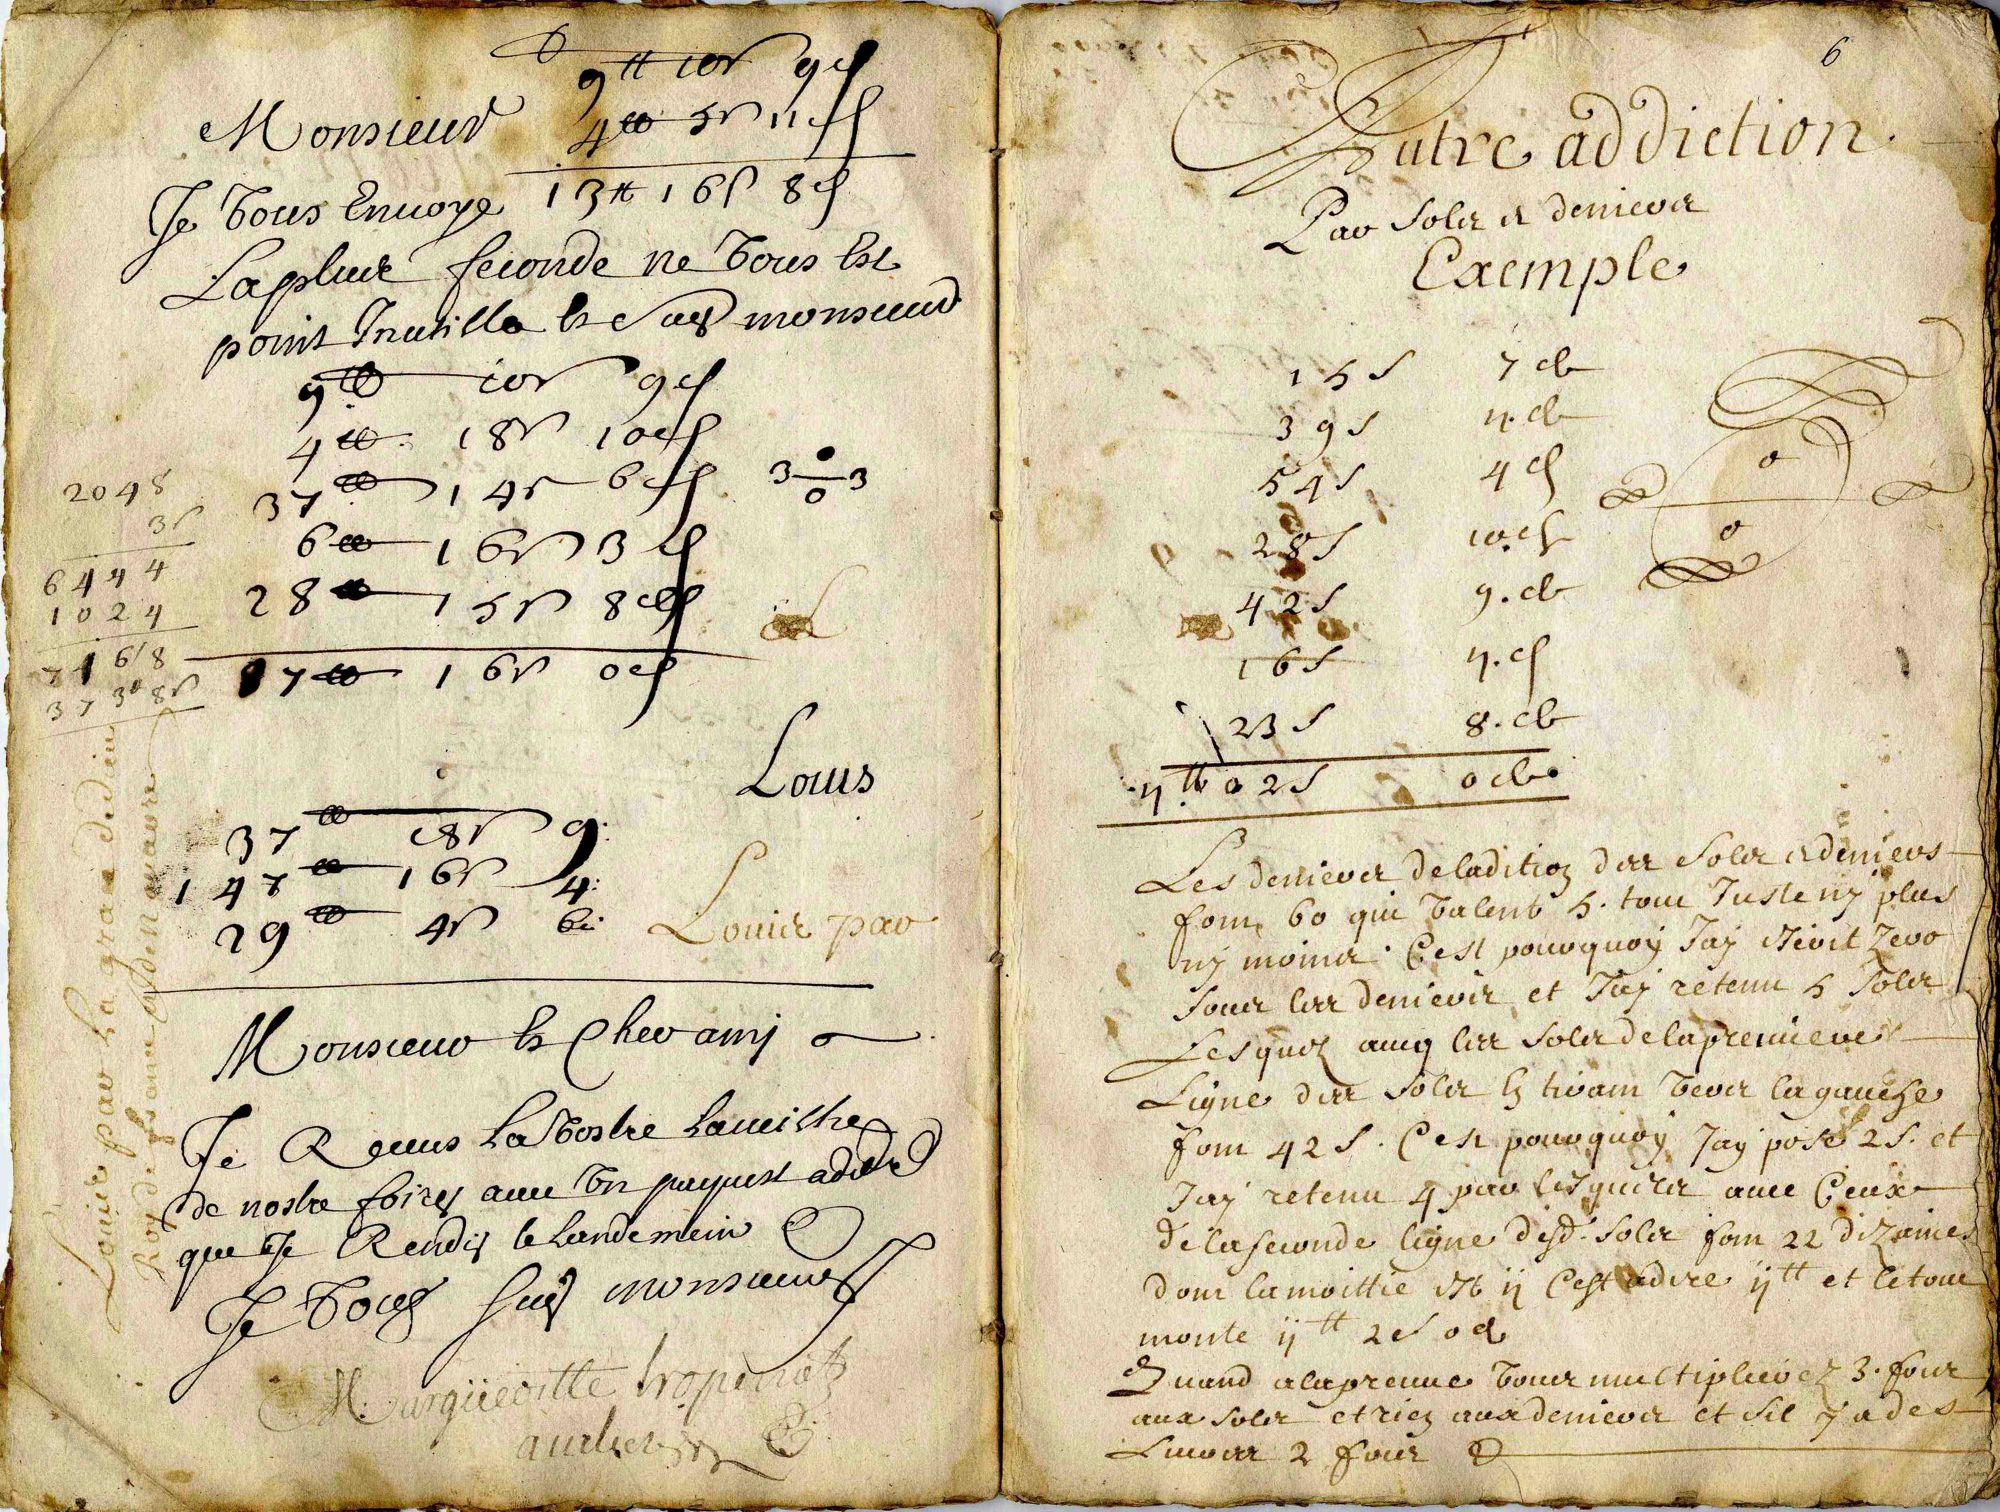 9tt 10s 9d
Monsieur 4tt 5s 11d
Je Vous Enuoye 13tt 16s 8d
La pluie seconde ne Vous Est
point Inutille Monsieur
9tt 10s 9d
4tt 18s 10d
37tt 14s 6d
6tt 16s 3d
28tt 15s 8d
87tt 16s 0d
3 0 3
0
2048
3s
6444
1024
37308s
Louis
37tt 18s 9
147tt 16s 4
29tt 4s 6
Louis par
Louis par La grace de dieu
Roy de france et de nauarre
Monsieur Et Cher amy
Je Receus La Vostre
de nostre foires auec Vn pacquest
que Je Rendis le Landemein
Je Vous suis monsieur
Margueritte
6
Autre addiction
Par Solz et deniers
Exemple
15s 7d
39s 11d
54s 4d
28s 10d
42s 9d
16s 11d
23s 8d
11tt 02s 0d
0
0
Les deniers de laditiõ des Solz et deniers
sont 60 qui Valent 5. tout Juste ny plus
ny moins. C'est pourquoy Jay escrit Zero
sous les deniers et Jay retenu 5 Solz
Lesquelz auec les Solz de la premiere
Ligne des Solz En tirant Vers la gauche
sont 42s. C'est pourquoy Jay posé 2s. et
Jay retenu 4 par lesquelz auec Ceux
de la seconde ligne desd. Solz sont 22 dizaines
dont la moittie est 11 C'est adire 11tt et le tout
monte 11tt 2s 0d
Quand a la preuue Vous multiplierez 3. fois
aux Solz et rien aux deniers et sil y a des
Liures 2 fois